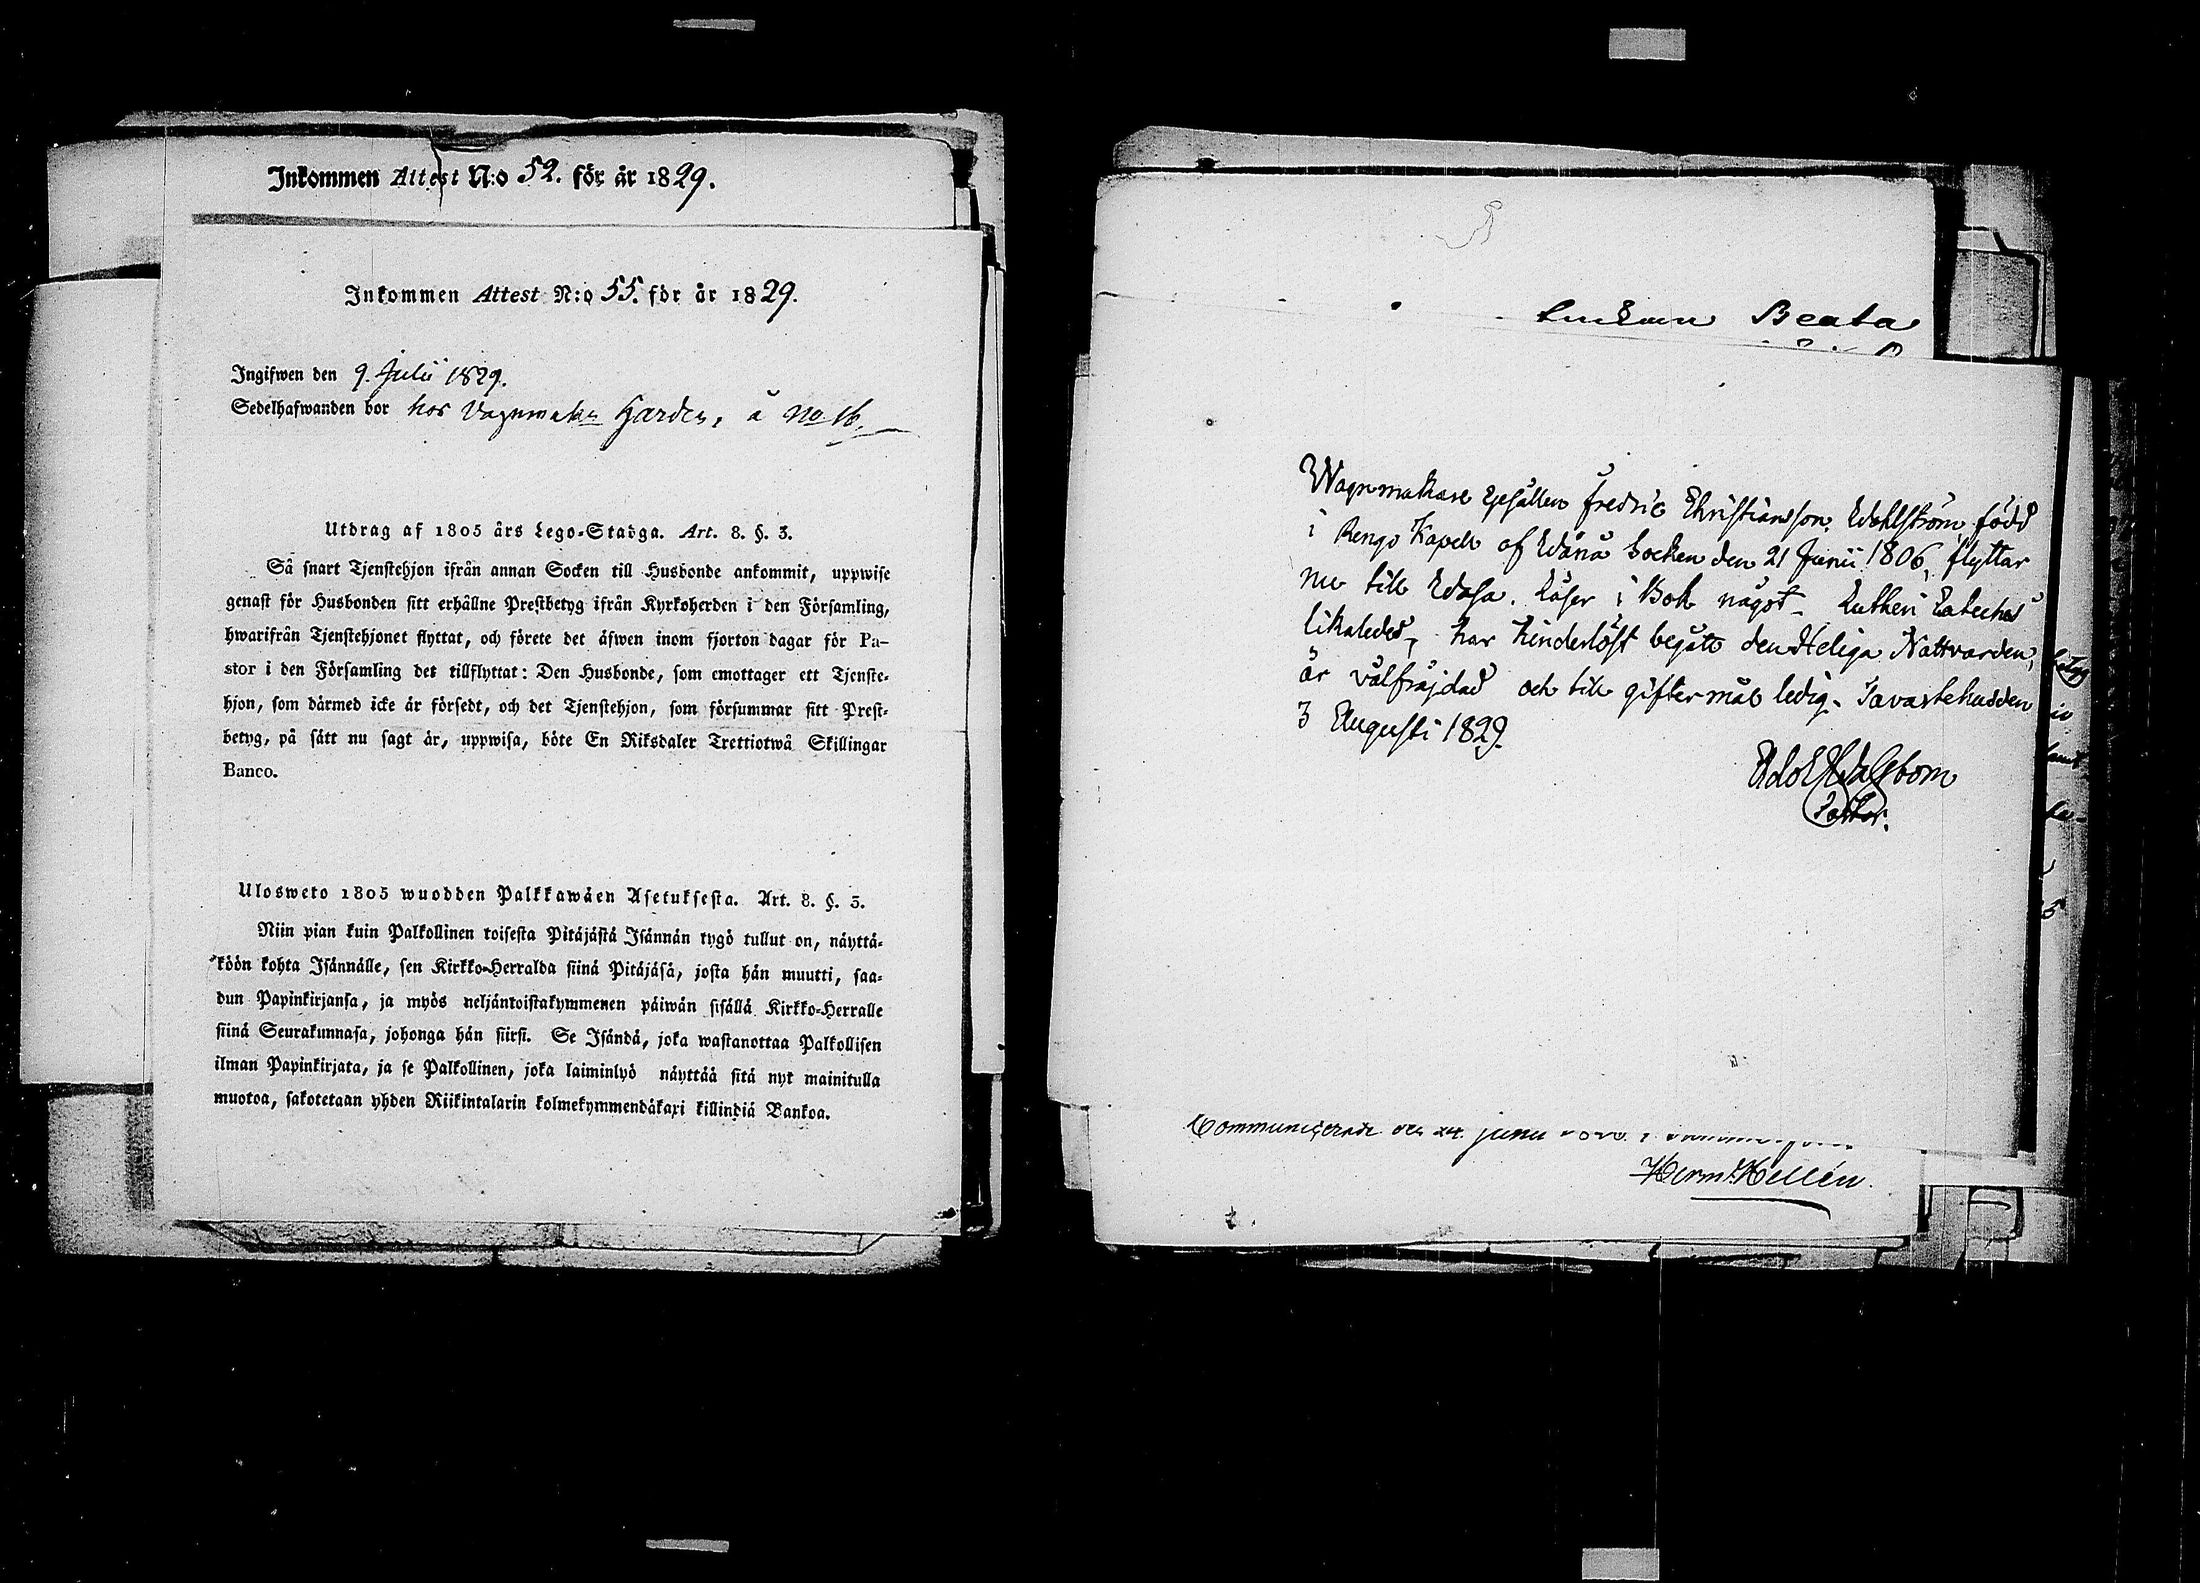 Inkommen Attest N:o 52. för år 1829.
Inkommen Attest N:o 55. för år 1829.
Ingifwen den 9. Julii 1829.
Sedelhafwanden bor hos Vagnmakar Gardin, å No 16.
Utdrag af 1805 års Lego-Stadga. Art. 8. §. 3.
Så snart Tjenstehjon ifrån annan Socken till Husbonde ankommit, uppwise
genast för Husbonden sitt erhållne Prestbetyg ifrån Kyrkoherden i den Församling,
hwarifrån Tjenstehjonet flyttat, och förete det äfwen inom fjorton dagar för Pa-
stor i den Församling det tillflyttat: Den Husbonde, som emottager ett Tjenste-
hjon, som därmed icke är försedt, och det Tjenstehjon, som försummar sitt Prest-
betyg, på sätt nu sagt är, uppwisa, böte En Riksdaler Trettiotwå Skillingar
Banco.
Ulosweto 1805 wuodden Palkkawäen Asetuksesta. Art. 8. §. 3.
Niin pian kuin Palkollinen toisesta Pitäjästä Isännän tygö tullut on, näyttä-
köön kohta Isännälle, sen Kirkko-Herralda siinä Pitäjäsä, josta hän muutti, saa-
dun Papinkirjansa, ja myös neljäntoistakymmenen päiwän sisällä Kirkko-Herralle
siinä Seurakunnasa, johonga hän siirsi. Se Isändä, joka wastanottaa Palkollisen
ilman Papinkirjata, ja se Palkollinen, joka laiminlyö näyttää sitä nyt mainitulla
muotoa, sakotetaan yhden Riikintalarin kolmekymmendäkaxi killindiä Bankoa.
Enkan Beata
Wagnmakare Gesällen Fredric Christiansson Wahlström, född
i Rengo Kapell af Wånå Socken den 21 Junii 1806, flyttar
nu till Wasa. Läser i Bok något. Lutheri Cateches
likaledes, har hinderlöst begått den Heliga Nattvarden,
är välfräjdad och till giftermål ledig. Tavastehus den
3 Augusti 1829.
Adolf Walbom
Pastor.
Communicerade den 24 junii
Herm. Hellén.